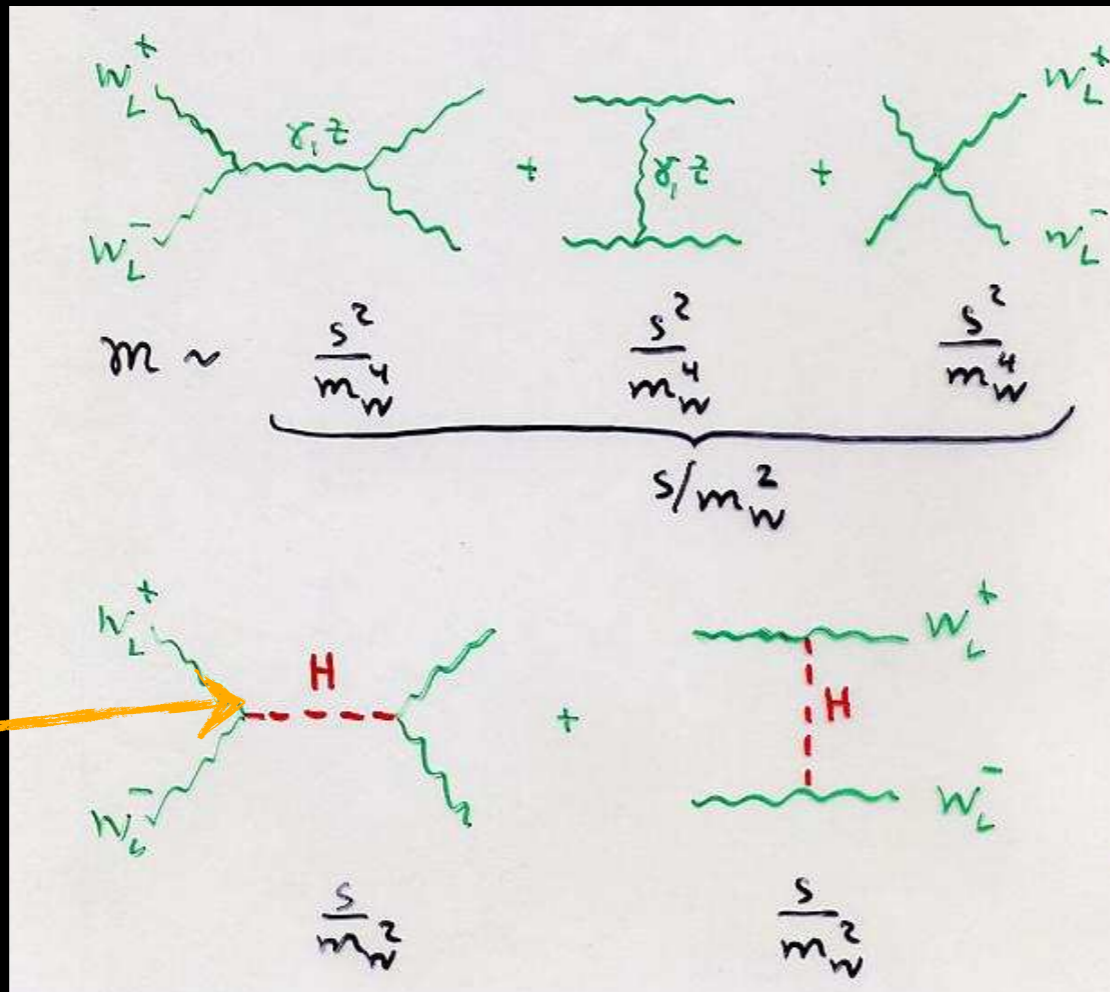 W_L^+
γ, Z
+
γ, Z
+
W_L^+
W_L^-
W_L^-
m ~ s^2/m_W^4 s^2/m_W^4 s^2/m_W^4
s/m_W^2
W_L^+
H
+
H
W_L^+
W_L^-
W_L^-
s/m_W^2 s/m_W^2